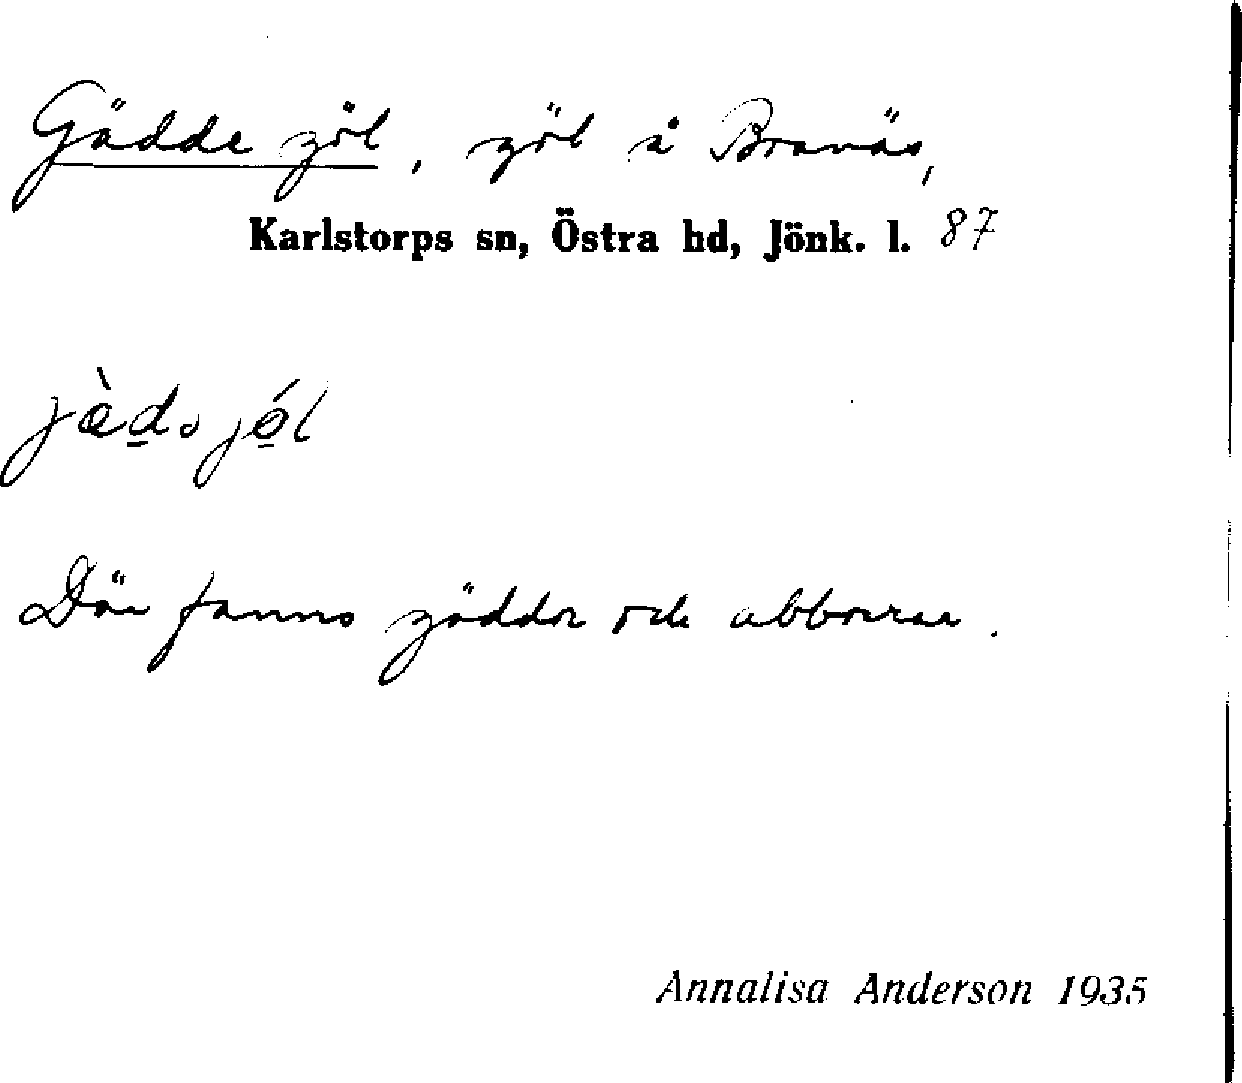 Gädde göl, göl å Branäs,
Karlstorps sn, Östra hd, Jönk. l. 87
jæ̀d̲ₒ jǿ̲l
Där fanns gäddor och abborrar.
Annalisa Anderson 1935